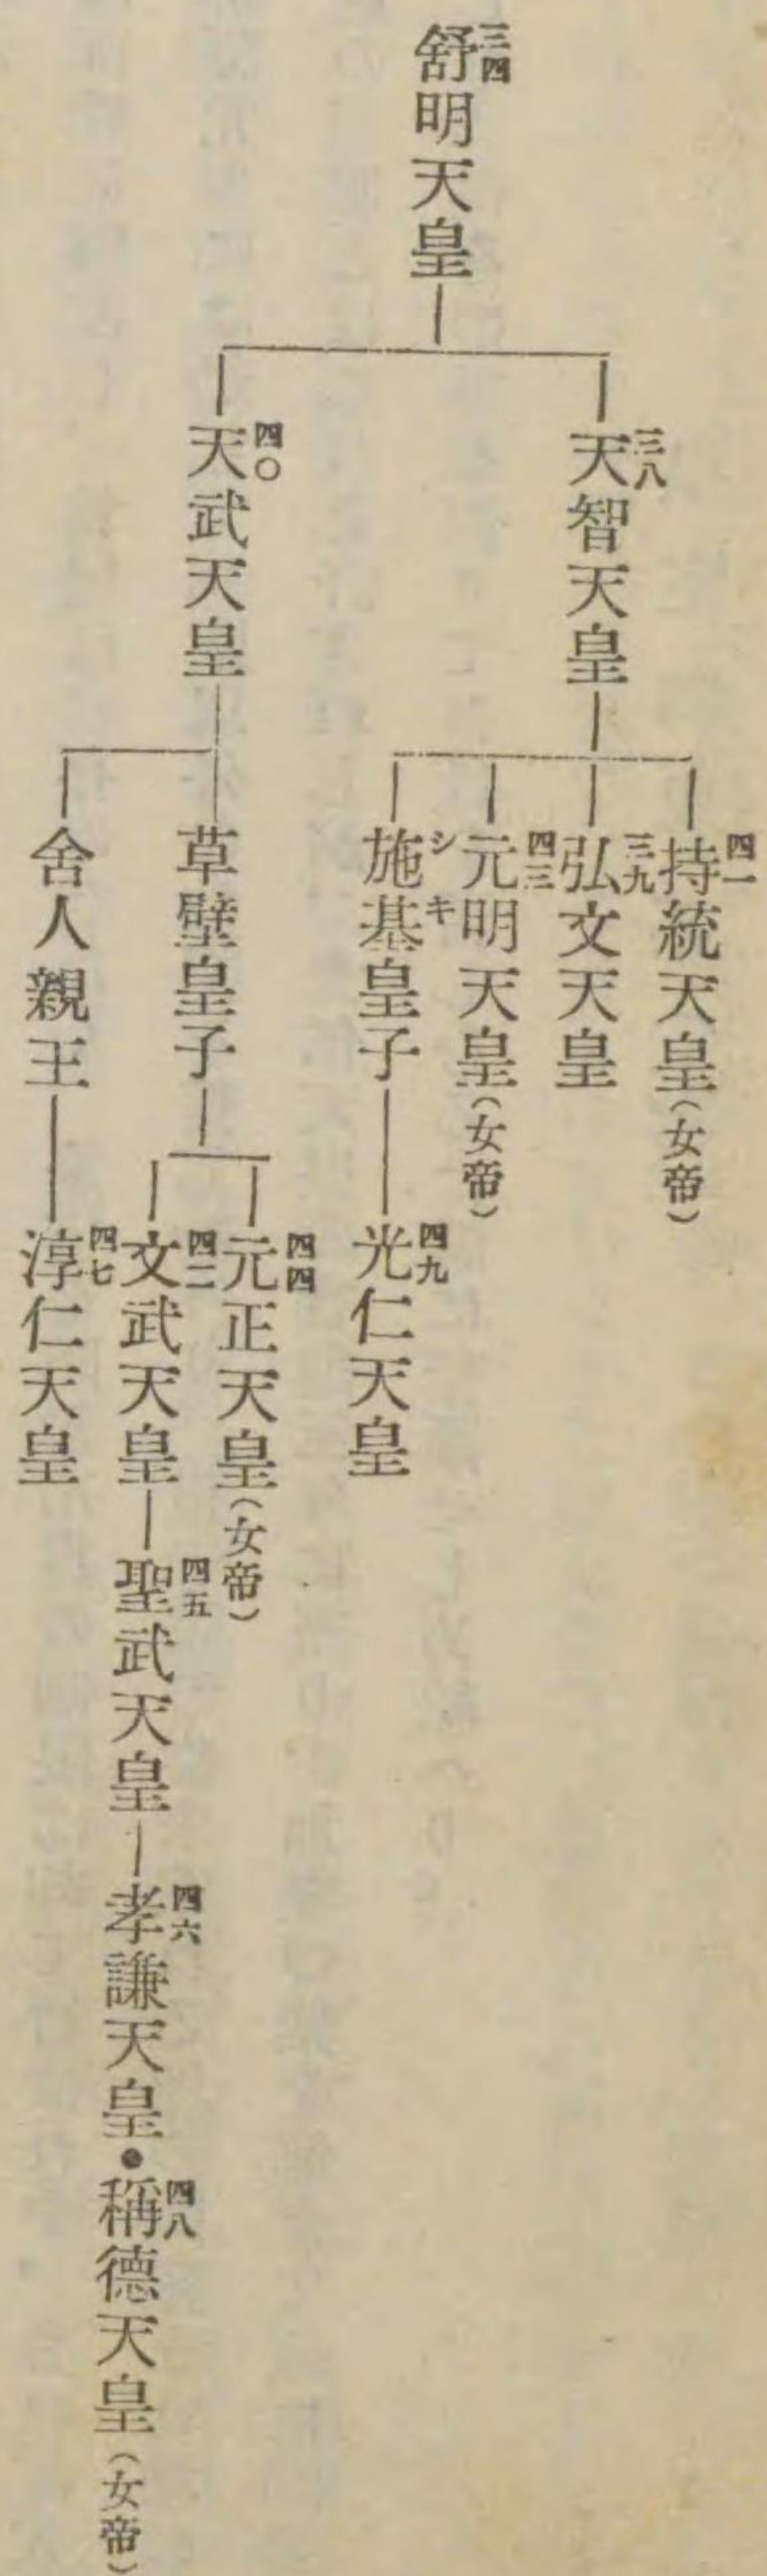 三四
舒明天皇
三八
天智天皇
四一
持統天皇(女帝)
三九
弘文天皇
四三
元明天皇(女帝)
シキ
施基皇子
四九
光仁天皇
四〇
天武天皇
草壁皇子
四四
元正天皇(女帝)
四二
文武天皇
四五
聖武天皇
四六
孝謙天皇・
四八
稱德天皇(女帝)
舍人親王
四七
淳仁天皇